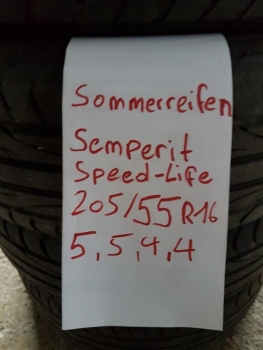 Sommerreifen
Semperit
Speed-Life
205/55 R16
5,5,4,4